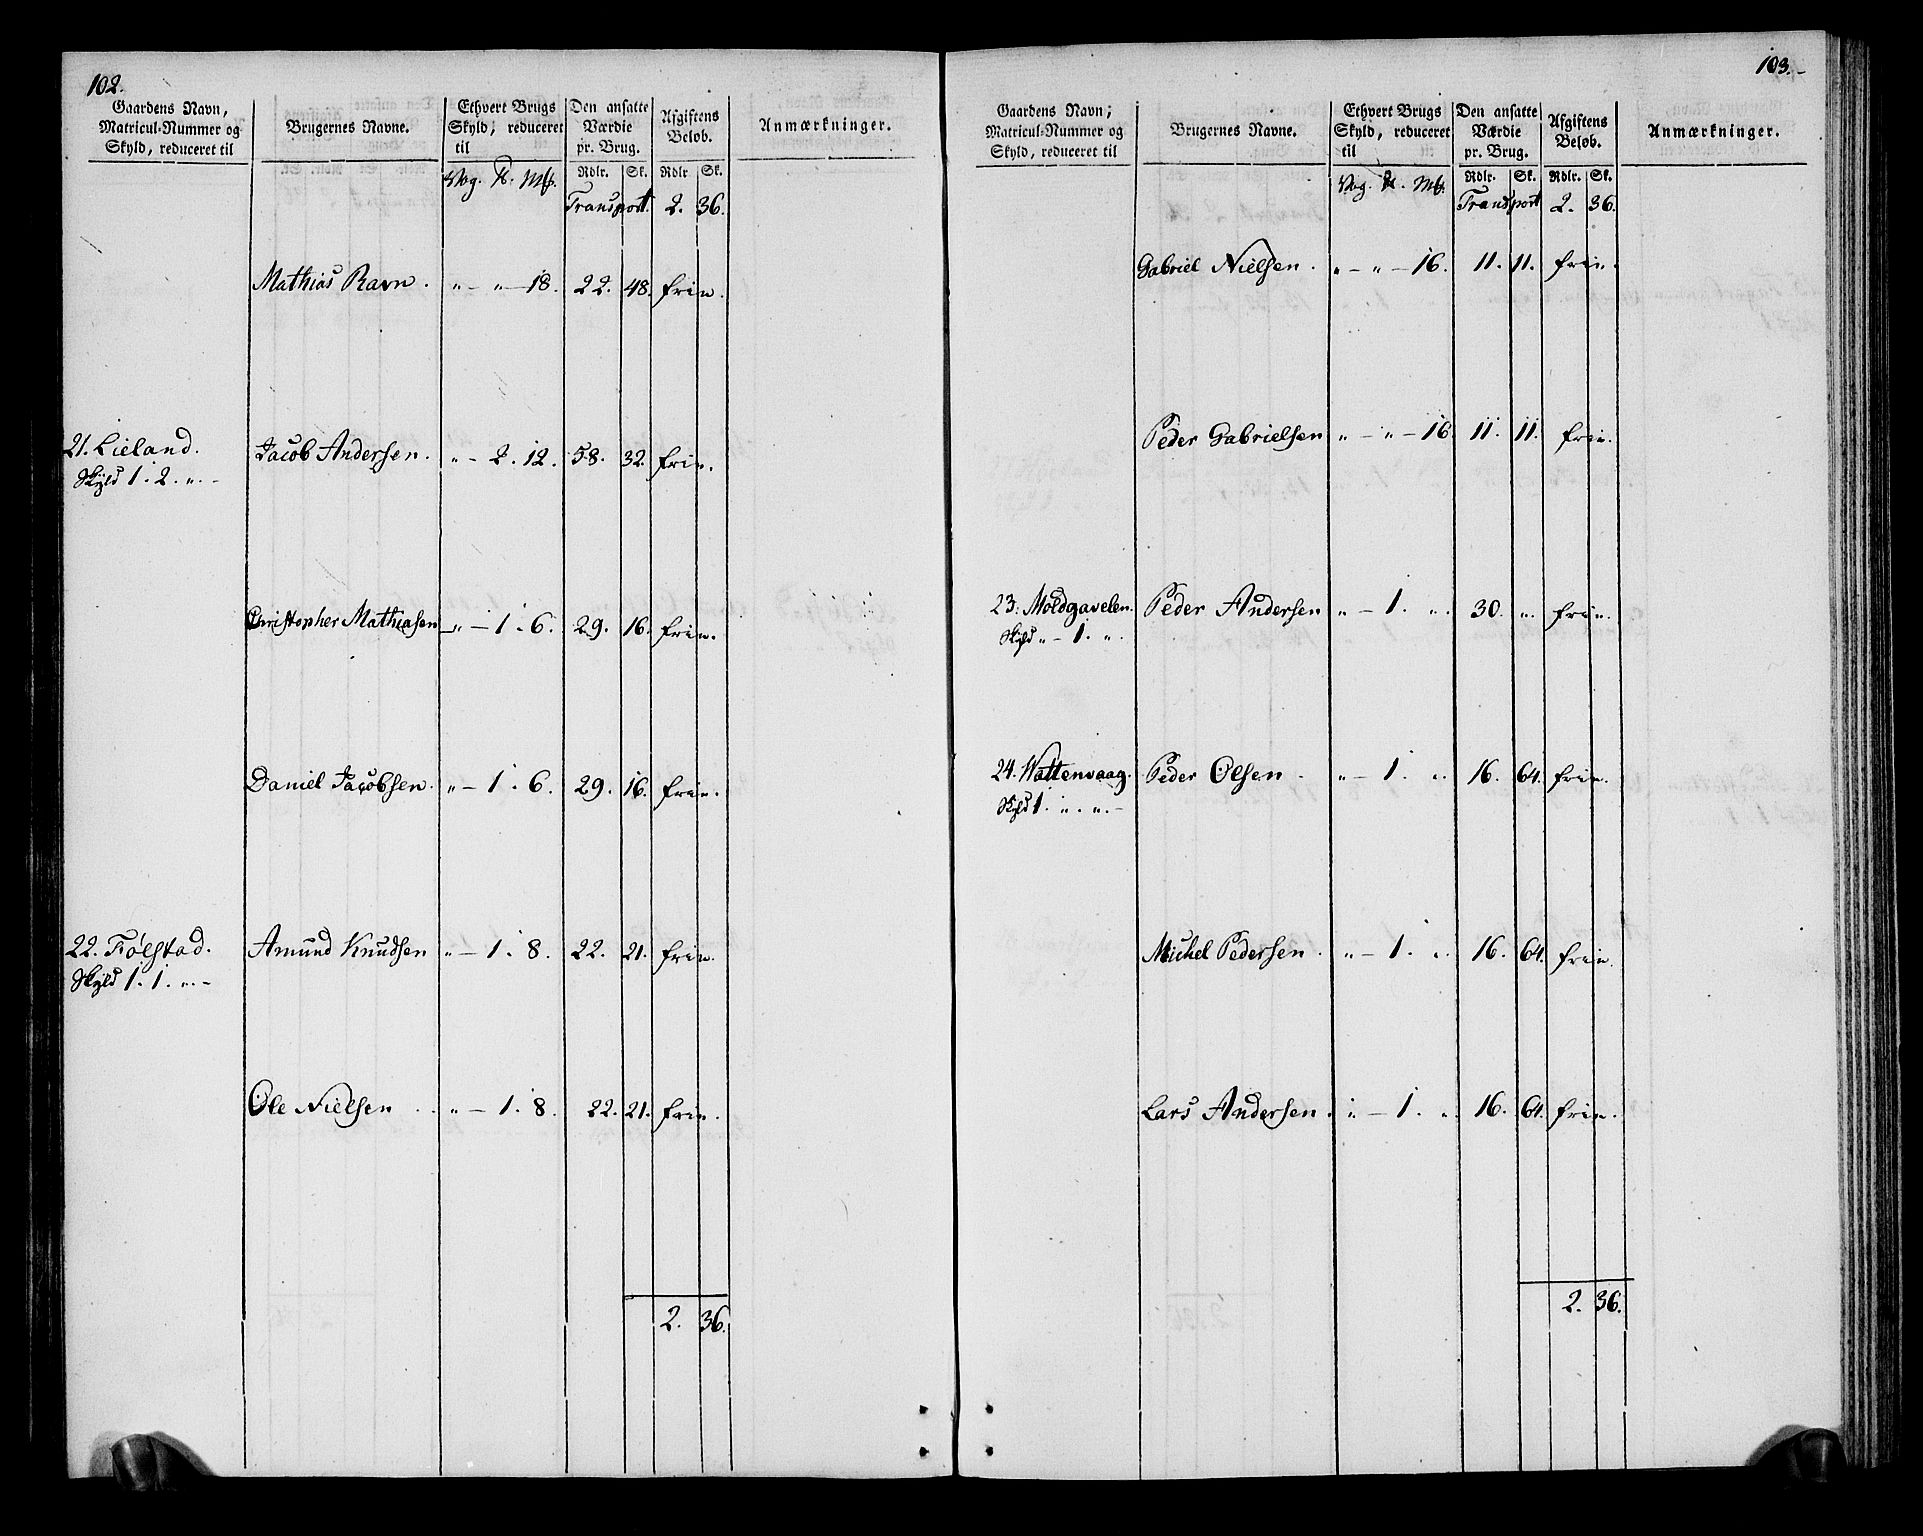 102.
Gaardens Navn, Matricul-Nummer og Skyld, reduceret til
Brugernes Navne.
Ethvert Brugs Skyld, reduceret til
Den ansatte Værdie pr. Brug.
Afgiftens Beløb.
Anmærkninger.
Rdlr. Sk. Rdlr. Sk.
Vog. Mk.
Transport. 2. 36.
Mathias Ravn. „ – „ – 18. 22. 48. frie.
21. Lieland. Jacob Andersen. „ – 2. 12. 58. 32. frie.
Skyld 1. 2. „. –
Christopher Mathiasen „ – 1. 6. 29. 16. frie.
Daniel Jacobsen. „ – 1. 6. 29. 16. frie.
22. Følstad. Amund Knudsen „ – 1. 8. 22. 21. frie.
Skyld 1. 1. „. –
Ole Nielsen „ – 1. 8. 22. 21. frie.
2. 36.
103.
Gaardens Navn; Matricul-Nummer og Skyld, reduceret til
Brugernes Navne.
Ethvert Brugs Skyld, reduceret til
Den ansatte Værdie pr. Brug.
Afgiftens Beløb.
Anmærkninger.
Rdlr. Sk. Rdlr. Sk.
Vog. Mk.
Transport 2. 36.
Gabriel Nielsen. „ – „ – 16. 11. 11. frie.
Peder Gabrielsen „ – „ – 16. 11. 11. frie.
23. Moldgavelen. Peder Andersen „ – 1. „. 30. „. frie.
Skyld „ – 1. „.
24. Wattenvaag. Peder Olsen. „ – 1. „. 16. 64. frie.
Skyld 1. „. „. –
Michel Pedersen. „ – 1. „. 16. 64. frie.
Lars Andersen. „ – 1. „. 16. 64. frie.
2. 36.